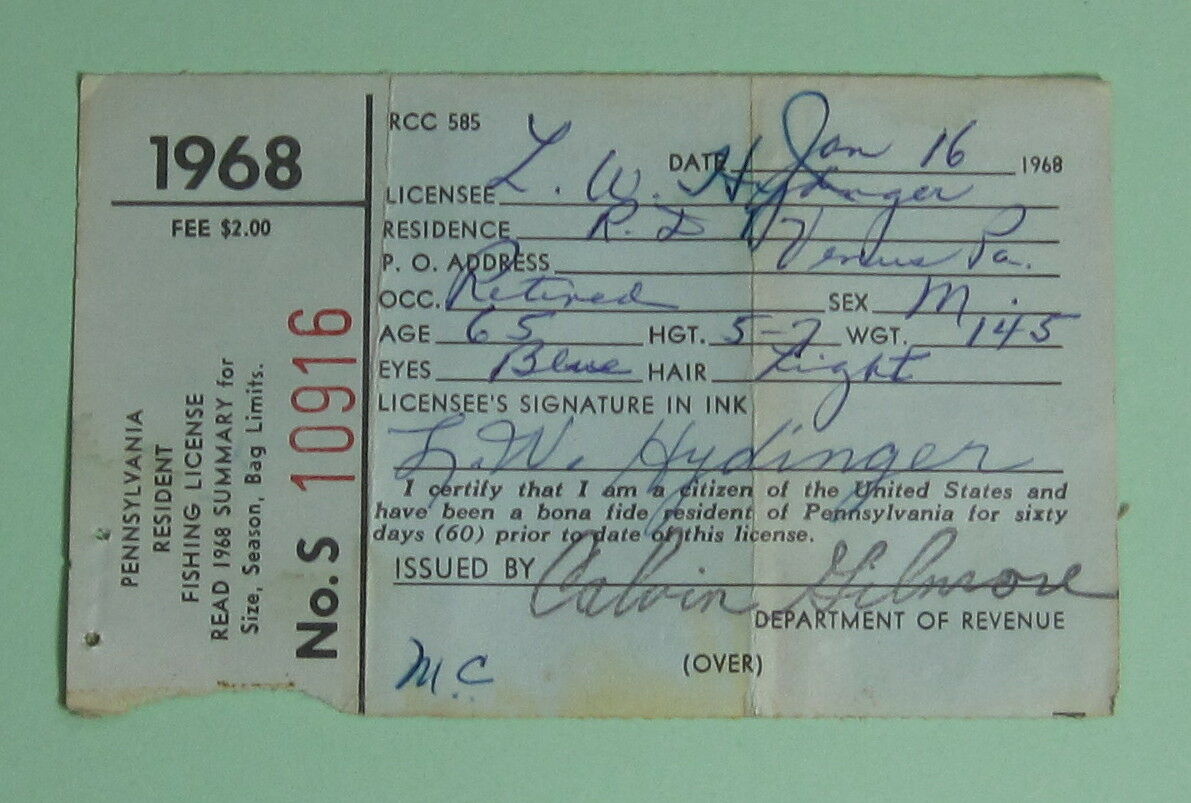 1968
FEE $2.00
PENNSYLVANIA
RESIDENT
FISHING LICENSE
READ 1968 SUMMARY for
Size, Season, Bag Limits.
No. S 10916
RCC 585
DATE Jan 16 1968
LICENSEE L. W. Hydinger
RESIDENCE R. D
P. O. ADDRESS Venus Pa.
OCC. Retired SEX M.
AGE 65 HGT. 5-7 WGT. 145
EYES Blue HAIR Light
LICENSEE'S SIGNATURE IN INK
L. W. Hydinger
I certify that I am a citizen of the United States and
have been a bona fide resident of Pennsylvania for sixty
days (60) prior to date of this license.
ISSUED BY Calvin Gilmore
DEPARTMENT OF REVENUE
(OVER)
M.C